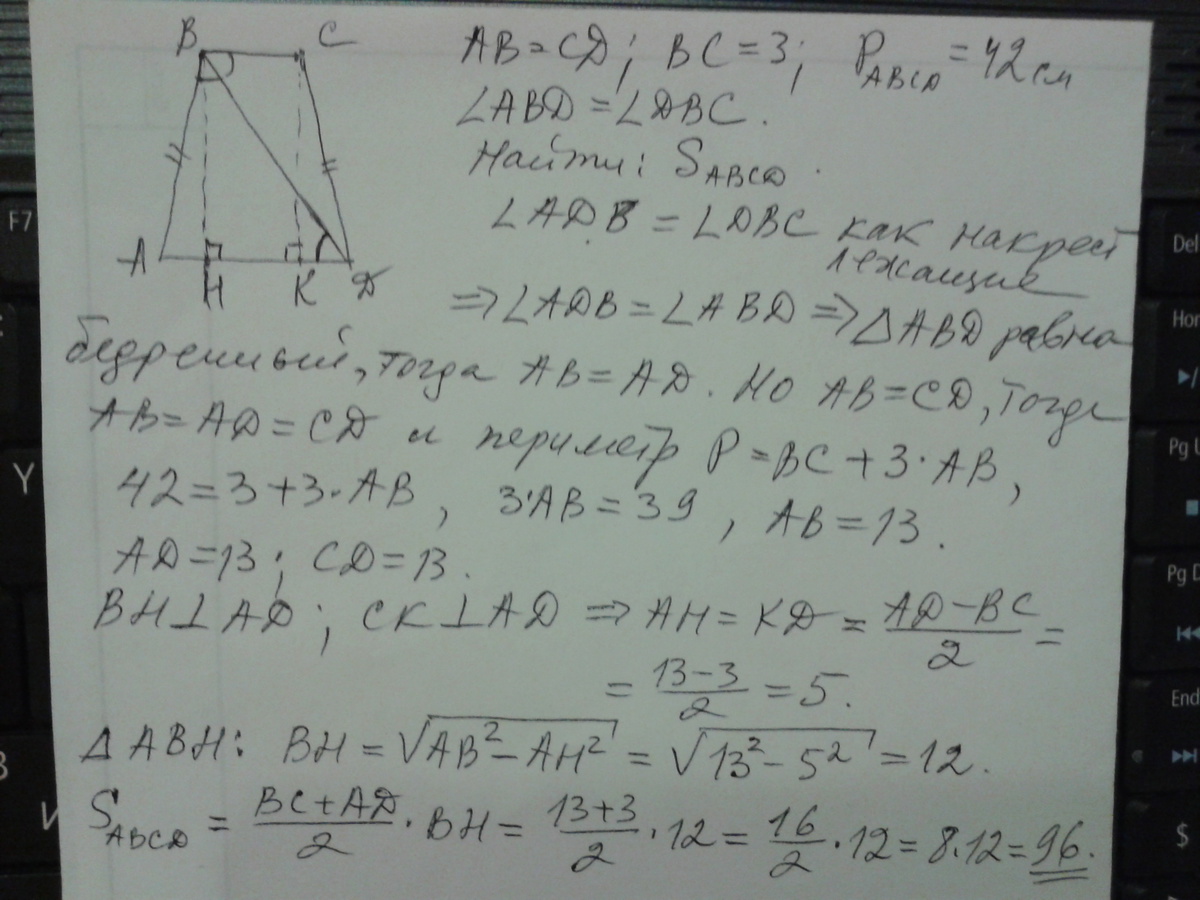 B C
A H K D
AB = CD; BC = 3; P_ABCD = 42 см
∠ABD = ∠DBC.
Найти: S_ABCD.
∠ADB = ∠DBC как накрест
лежащие
⇒ ∠ADB = ∠ABD ⇒ △ABD равно
бедренный, тогда AB = AD. Но AB = CD, тогда
AB = AD = CD и периметр P = BC + 3·AB,
42 = 3 + 3·AB, 3·AB = 39, AB = 13.
AD = 13; CD = 13.
BH ⊥ AD; CK ⊥ AD ⇒ AH = KD = (AD − BC)/2 =
= (13 − 3)/2 = 5.
△ABH: BH = √(AB² − AH²) = √(13² − 5²) = 12.
S_ABCD = (BC + AD)/2 · BH = (13 + 3)/2 · 12 = 16/2 · 12 = 8·12 = 96.
F7
Y
Del
Pg
Pg D
End
$